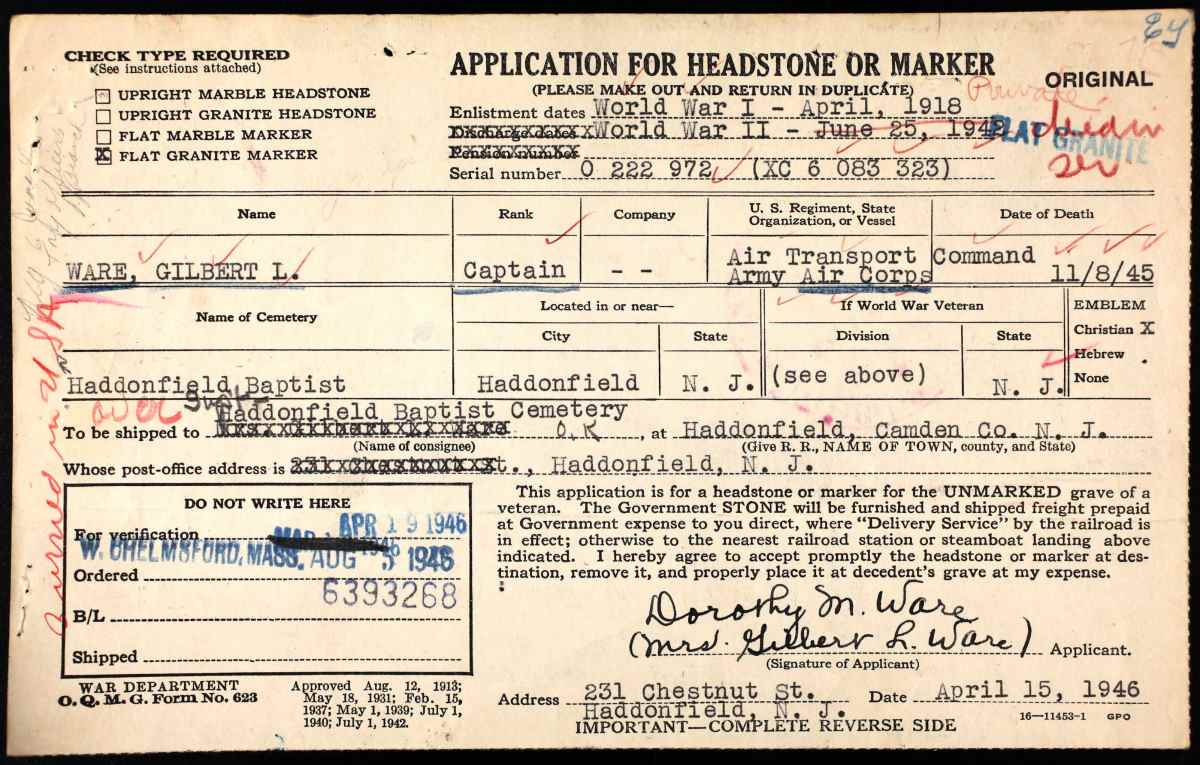 EG
CHECK TYPE REQUIRED
(See instructions attached)
UPRIGHT MARBLE HEADSTONE
UPRIGHT GRANITE HEADSTONE
FLAT MARBLE MARKER
X FLAT GRANITE MARKER
APPLICATION FOR HEADSTONE OR MARKER
(PLEASE MAKE OUT AND RETURN IN DUPLICATE)
ORIGINAL
Enlistment dates World War I - April, 1918
Private
Discharge dates World War II - June 25, 1942
died in
ser
FLAT GRANITE
Pension number
Serial number 0 222 972 (XC 6 083 323)
Name
Rank
Company
U. S. Regiment, State
Organization, or Vessel
Date of Death
WARE, GILBERT L.
Captain
- -
Air Transport Command
Army Air Corps
11/8/45
Name of Cemetery
Located in or near—
City
State
If World War Veteran
Division
State
EMBLEM
Christian X
Hebrew
None
Haddonfield Baptist
Haddonfield
N. J.
(see above)
N. J.
over
Supt
Haddonfield Baptist Cemetery
To be shipped to Mrs. Gilbert L. Ware O.K , at Haddonfield, Camden Co. N. J.
(Name of consignee)
(Give R. R., NAME OF TOWN, county, and State)
Whose post-office address is 231 Chestnut St., Haddonfield, N. J.
DO NOT WRITE HERE
For verification
APR 19 1946
W. CHELMSFORD, MASS. AUG 5 1946
Ordered
6393268
B/L
Shipped
This application is for a headstone or marker for the UNMARKED grave of a
veteran. The Government STONE will be furnished and shipped freight prepaid
at Government expense to you direct, where "Delivery Service" by the railroad is
in effect; otherwise to the nearest railroad station or steamboat landing above
indicated. I hereby agree to accept promptly the headstone or marker at des-
tination, remove it, and properly place it at decedent's grave at my expense.
Dorothy M. Ware
(Mrs. Gilbert L. Ware) Applicant.
(Signature of Applicant)
WAR DEPARTMENT
O. Q. M. G. Form No. 623
Approved Aug. 12, 1913;
May 18, 1931; Feb. 15,
1937; May 1, 1939; July 1,
1940; July 1, 1942.
Address 231 Chestnut St.
Haddonfield, N. J.
Date April 15, 1946
IMPORTANT—COMPLETE REVERSE SIDE
16—11453-1 GPO